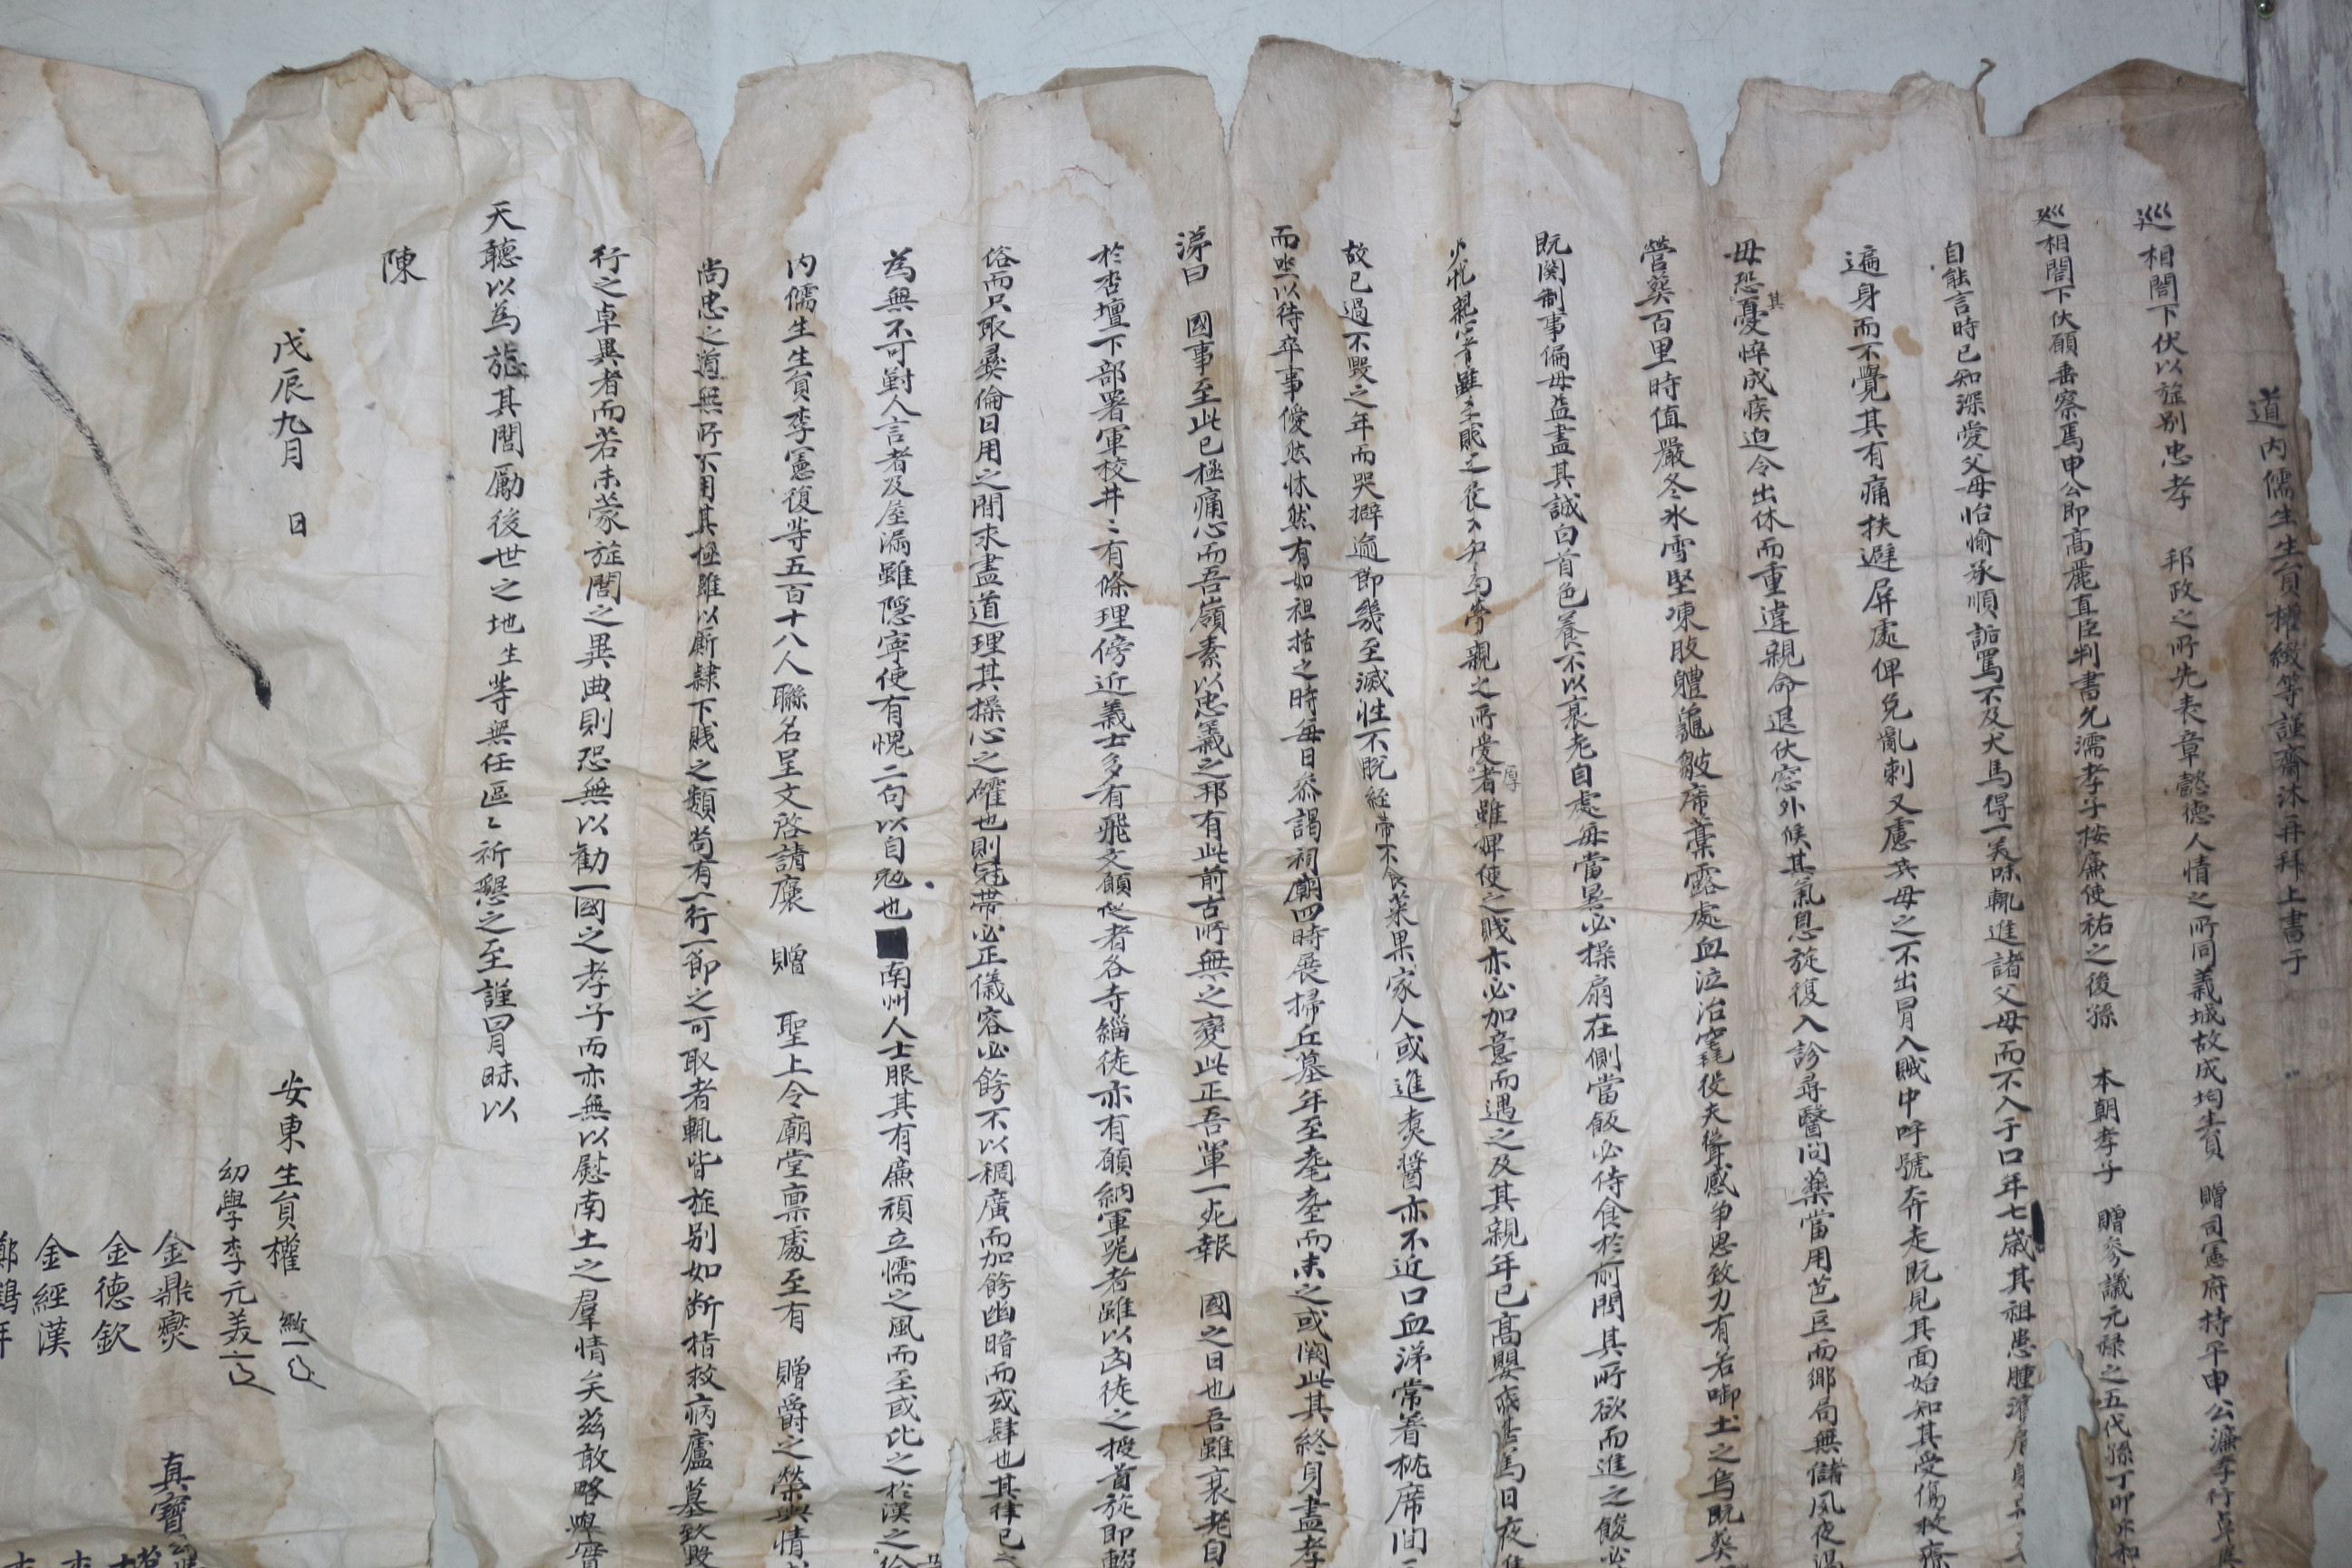 道內儒生生員權緻等謹齋沐再拜上書于
巡相閤下伏以旌別忠孝 邦政之所先表章懿德人情之所同義城故成均生員 贈司憲府持平申公濂孝行卓
巡相閤下伏願垂察焉申公即高麗直臣判書允濡孝子按廉使祐之後孫 本朝孝子 贈參議元祿之五代孫丁卯
自能言時已知深愛父母怡愉承順詬罵不及犬馬得一美味輒進諸父母而不入于口年七歲其祖患腫
遍身而不覺其有痛扶避屏處俾免亂刺又慮其母之不出冒入賊中呼號奔走既見其面始知其受傷
母恐其憂悴成疾迫令出休而重違親命退伏窓外候其氣息旋復入診尋醫問藥當用芭豆而鄉局無儲夙夜
營葬百里時值嚴冬氷雪堅凍肢體龜皴席藁露處血泣治窆役夫聳感爭思致力有若啣土之烏既葬
既闋制事偏母益盡其誠白首色養不以衰老自處每當暑必操扇在側當飯必侍食於前問其所欲而進之餕必
親之所愛厚者雖婢使之賤亦必加意而遇之及其親年已高嬰疾甚焉日夜
故已過不毀之年而哭擗逾節幾至滅性不脫絰帶不食菜果家人或進煑醬亦不近口血涕常着枕席間
而坐以待卒事僾然怵然有如袒括之時每日恭謁祠廟四時展掃丘墓年至耄耋而未之或闕此其終身盡孝
涕曰 國事至此已極痛心而吾嶺素以忠義之邦有此前古所無之變此正吾輩一死報 國之日也吾雖衰老自
於杏壇下部署軍校井〻有條理傍近義士多有飛文願從者各寺緇徒亦有願納軍號者雖以凶徒之授首旋即
俗而只取彛倫日用之間求盡道理其操心之確也則冠帶必正儀容必飭不以稠廣而加飭幽暗而或肆也其律己之
為無不可對人言者及屋漏雖隱寧使有愧二句以自勉也 南州人士服其有廉頑立懦之風而至或比之於漢之
內儒生生員李憲復等五百十八人聯名呈文啓請褒 贈 聖上令廟堂禀處至有 贈爵之榮輿情
尚忠之道無所不用其極雖以厮隷下賤之類尚有一行一節之可取者輒皆旌別如斷指救病廬墓致毀
行之卓異者而若未蒙旌閭之異典則恐無以勸一國之孝子而亦無以慰南土之羣情矣茲敢略擧實
天聽以為旌其閭勵後世之地生等無任區〻祈懇之至謹冒昧以
陳
戊辰九月 日
安東生員權 緻
幼學李元美
金鼎燮
金德欽
金經漢
真寶